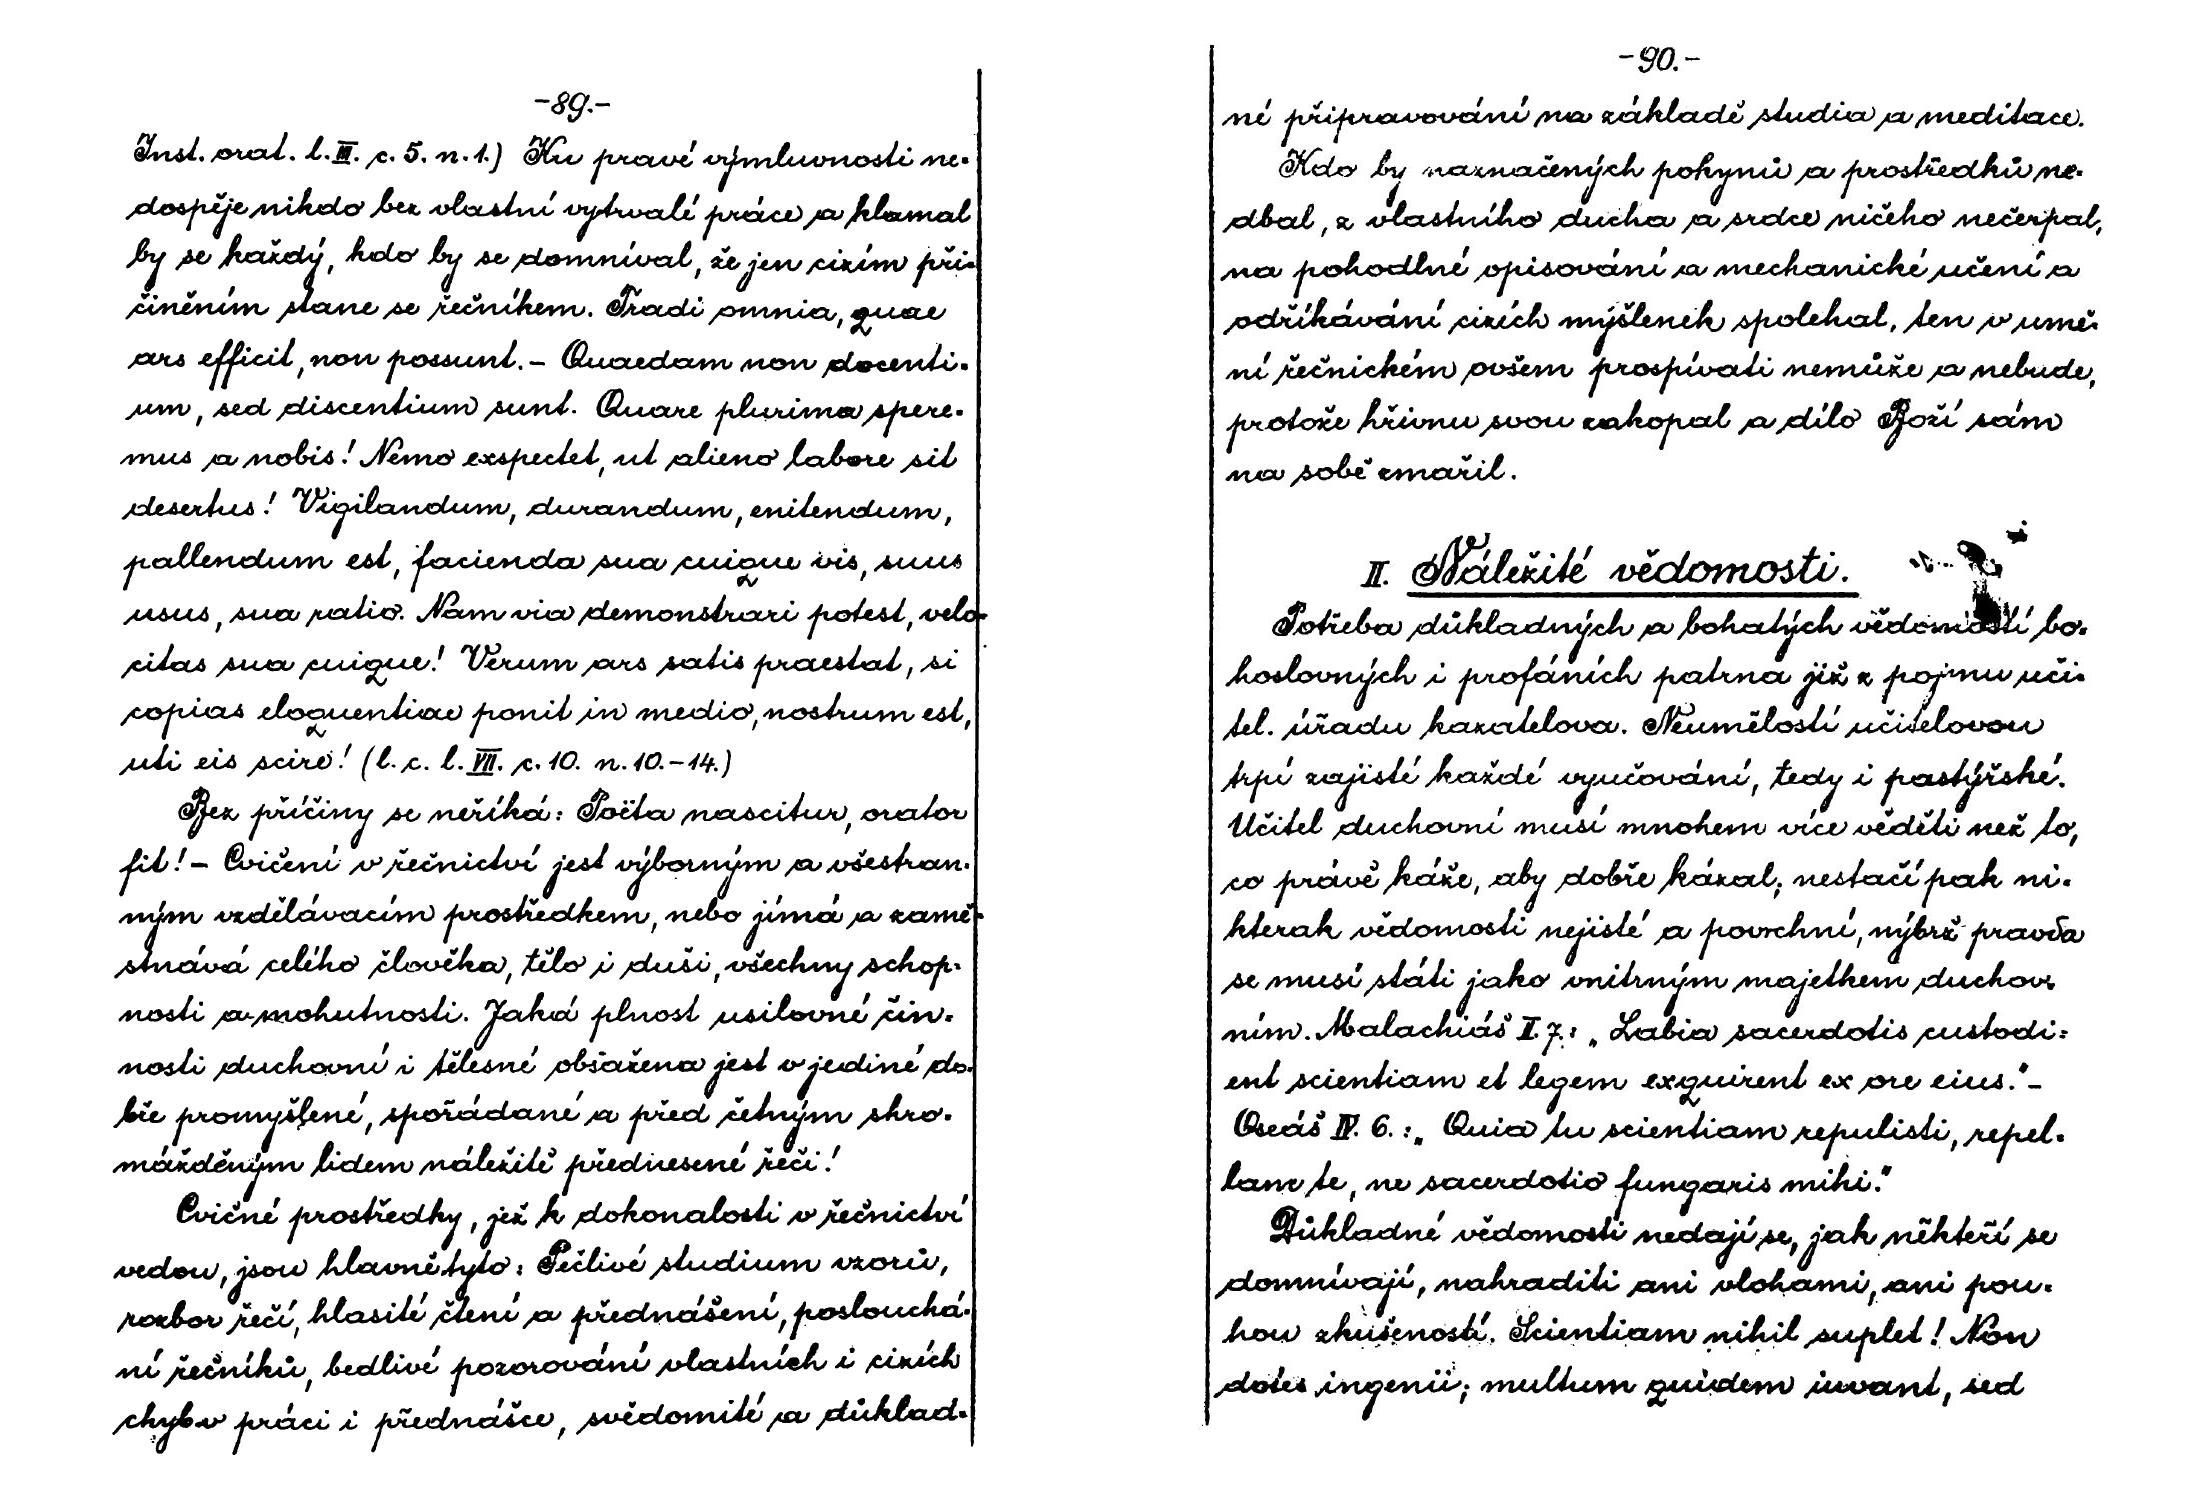 -89.-
Inst. orat. l. III. c. 5. n. 1.) Ku pravé výmluvnosti ne-
dospěje nikdo bez vlastní vytrvalé práce a klamal
by se každý, kdo by se domníval, že jen cizím při-
činěním stane se řečníkem. Tradi omnia, quae
ars efficit, non possunt. - Quaedam non docenti-
um, sed discentium sunt. Quare plurima spere-
mus a nobis! Nemo exspectet, ut alieno labore sit
desertus! Vigilandum, durandum, enitendum,
pallendum est, facienda sua cuique vis, suus
usus, sua ratio. Nam via demonstrari potest, velo-
citas sua cuique! Verum ars satis praestat, si
copias eloquentiae ponit in medio, nostrum est,
uti eis scire! (l. c. l. VII. c. 10. n. 10.-14.)
Bez příčiny se neříká: Poëta nascitur, orator
fit! - Cvičení v řečnictví jest výborným a všestran-
ným vzdělávacím prostředkem, nebo jímá a zamě-
stnává celého člověka, tělo i duši, všechny schop-
nosti a mohutnosti. Jaká plnost usilovné čin-
nosti duchovní i tělesné obsažena jest v jediné do-
bře promyšlené, spořádané a před četným shro-
mážděným lidem náležitě přednesené řeči!
Cvičné prostředky, jež k dokonalosti v řečnictví
vedou, jsou hlavně tyto: Pečlivé studium vzorů,
rozbor řečí, hlasité čtení a přednášení, poslouchá-
ní řečníků, bedlivé pozorování vlastních i cizích
chyb v práci i přednášce, svědomité a důklad-
-90.-
né připravování na základě studia a meditace.
Kdo by naznačených pokynů a prostředků ne-
dbal, z vlastního ducha a srdce ničeho nečerpal,
na pohodlné opisování a mechanické učení a
odříkávání cizích myšlenek spolehal, ten v umě-
ní řečnickém ovšem prospívati nemůže a nebude,
protože hřivnu svou zakopal a dílo Boží sám
na sobě zmařil.
II. Náležité vědomosti.
Potřeba důkladných a bohatých vědomostí bo-
hoslovných i profáních patrna již z pojmu uči-
tel. úřadu kazatelova. Neumělostí učitelovou
trpí zajisté každé vyučování, tedy i pastýřské.
Učitel duchovní musí mnohem více věděti než to,
co právě káže, aby dobře kázal; nestačí pak ni-
kterak vědomosti nejisté a povrchní, nýbrž pravda
se musí státi jako vnitrným majetkem duchov-
ním. Malachiáš II. 7.: „Labia sacerdotis custodi-
ent scientiam et legem exquirent ex ore eius." -
Oseáš IV. 6.: „Quia tu scientiam repulisti, repel-
lam te, ne sacerdotio fungaris mihi."
Důkladné vědomosti nedají se, jak někteří se
domnívají, nahraditi ani vlohami, ani pou-
hou zkušeností. Scientiam nihil suplet! Non
dotes ingenii; multum quidem iuvant, sed